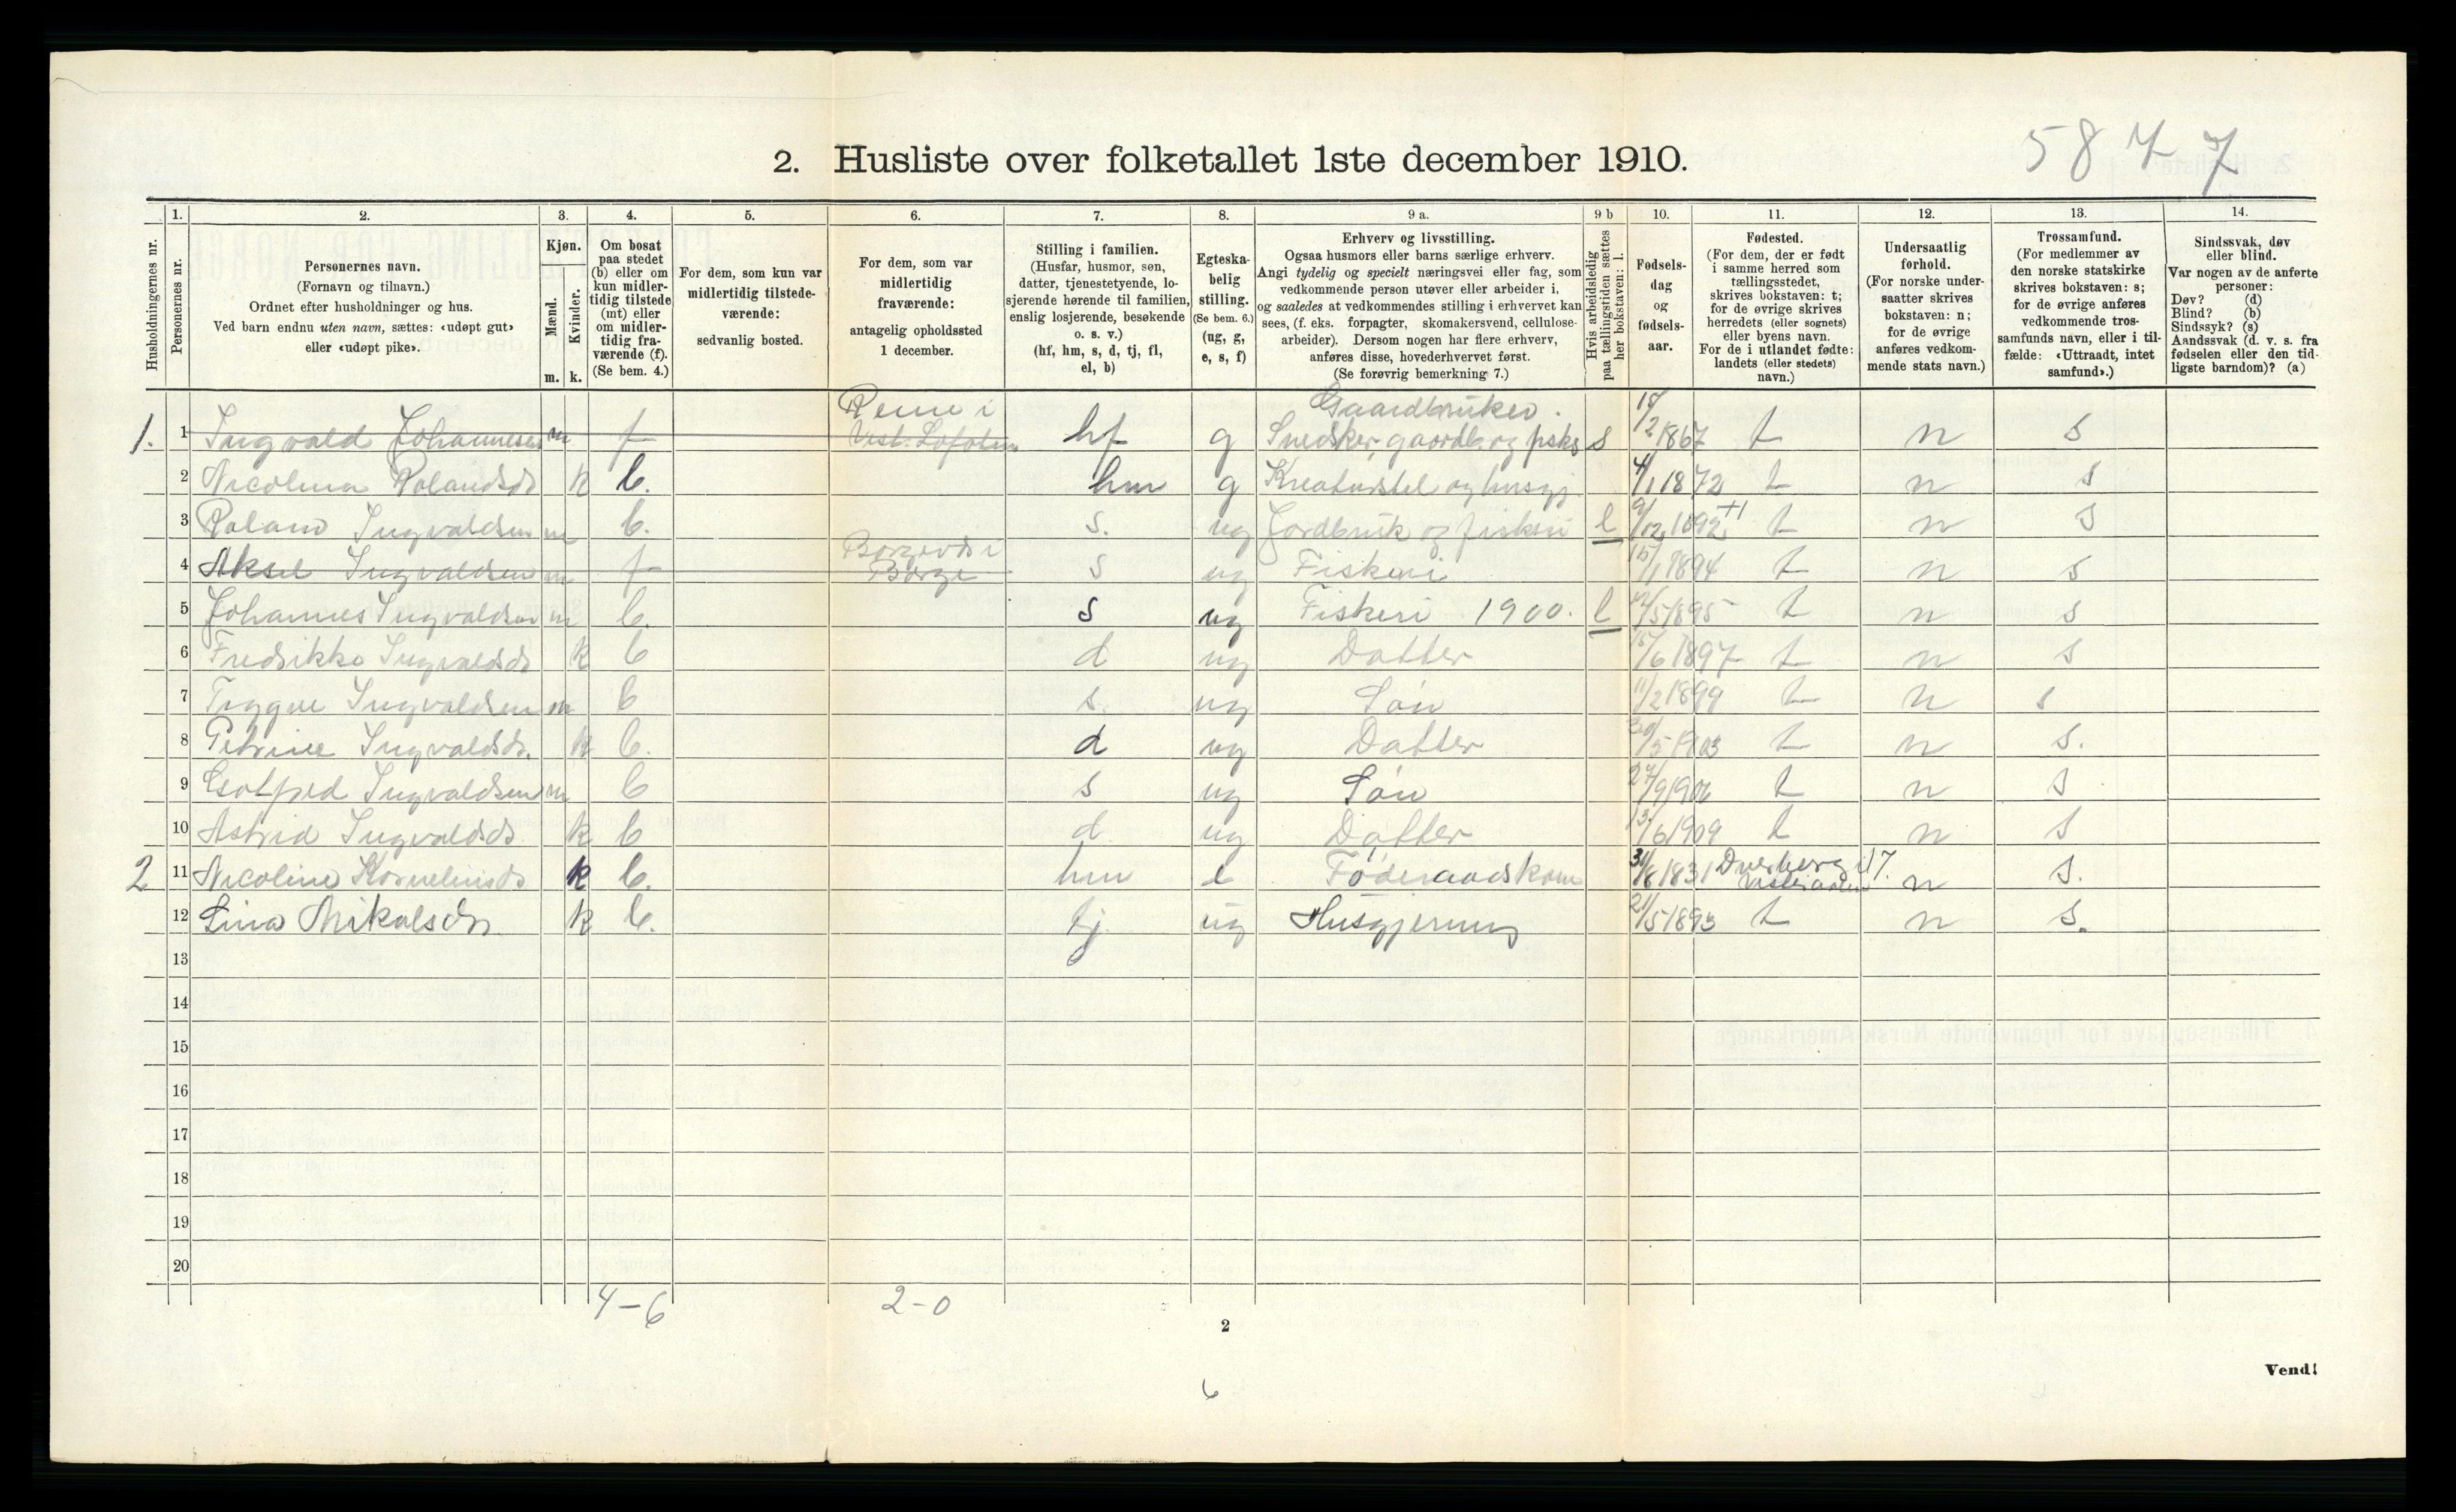 58 7 7
2. Husliste over folketallet 1ste december 1910.
Husholdningernes nr.
1. Personernes nr.
2. Personernes navn. (Fornavn og tilnavn.) Ordnet efter husholdninger og hus. Ved barn endnu uten navn, sættes: «udøpt gut» eller «udøpt pike».
3. Kjøn. Mænd. m. Kvinder. k.
4. Om bosat paa stedet (b) eller om kun midlertidig tilstede (mt) eller om midlertidig fraværende (f). (Se bem. 4.)
5. For dem, som kun var midlertidig tilstedeværende: sedvanlig bosted.
6. For dem, som var midlertidig fraværende: antagelig opholdssted 1 december.
7. Stilling i familien. (Husfar, husmor, søn, datter, tjenestetyende, losjerende hørende til familien, enslig losjerende, besøkende o. s. v.) (hf, hm, s, d, tj, fl, el, b)
8. Egteskabelig stilling. (Se bem. 6.) (ug, g, e, s, f)
9 a. Erhverv og livsstilling. Ogsaa husmors eller barns særlige erhverv. Angi tydelig og specielt næringsvei eller fag, som vedkommende person utøver eller arbeider i, og saaledes at vedkommendes stilling i erhvervet kan sees, (f. eks. forpagter, skomakersvend, cellulosearbeider). Dersom nogen har flere erhverv, anføres disse, hovederhvervet først. (Se forøvrig bemerkning 7.)
9 b Hvis arbeidsledig paa tællingstiden sættes her bokstaven: l.
10. Fødselsdag og fødselsaar.
11. Fødested. (For dem, der er født i samme herred som tællingsstedet, skrives bokstaven: t; for de øvrige skrives herredets (eller sognets) eller byens navn. For de i utlandet fødte: landets (eller stedets) navn.)
12. Undersaatlig forhold. (For norske undersaatter skrives bokstaven: n; for de øvrige anføres vedkommende stats navn.)
13. Trossamfund. (For medlemmer av den norske statskirke skrives bokstaven: s; for de øvrige anføres vedkommende trossamfunds navn, eller i tilfælde: «Uttraadt, intet samfund».)
14. Sindssvak, døv eller blind. Var nogen av de anførte personer: Døv? (d) Blind? (b) Sindssyk? (s) Aandssvak (d. v. s. fra fødselen eller den tidligste barndom)? (a)
1. 1 Ingvald Johannesen m f Reine i Vest-Lofoten hf g Gaardbruker. Snedker, gaardb. og fisker s 18/2 1867 t n s
2 Nicolina Rolandsdr k b. hm g Kreaturstel og husgj. 4/1 1872 t n s
3 Roland Ingvaldsen m b. s. ug Jordbruk og fiskeri l 9/12 1892 +1 t n s
4 Aksel Ingvaldsen m f i Borge s ug Fiskeri 15/1 1894 t n s
5 Johannes Ingvaldsen m b. s ug Fiskeri 1900. l /5 1895 t n s
6 Fredrikke Ingvaldsdr k b d ug Datter 15/6 1897 t n s
7 Tryggve Ingvaldsen m b s. ug Søn 11/2 1899 t n s
8 Petrine Ingvaldsdr. k b. d ug Datter 30/5 1903 t n s.
9 Gotfred Ingvaldsen m b s ug Søn 27/9 1906 t n s
10 Astrid Ingvaldsdr. k b d. ug Datter 13/6 1909 t n s
2 11 Nicoline Korneliusdr k b. hm e Føderaadskone 31/8 1831 Dverberg i Vesteraalen 17. n s.
12 Lina Mikalsdr. k b. tj. ug Husgjerning 21/5 1893 t n s.
13
14
15
16
17
18
19
20
4 – 6 2 – 0
2
Vend!
6